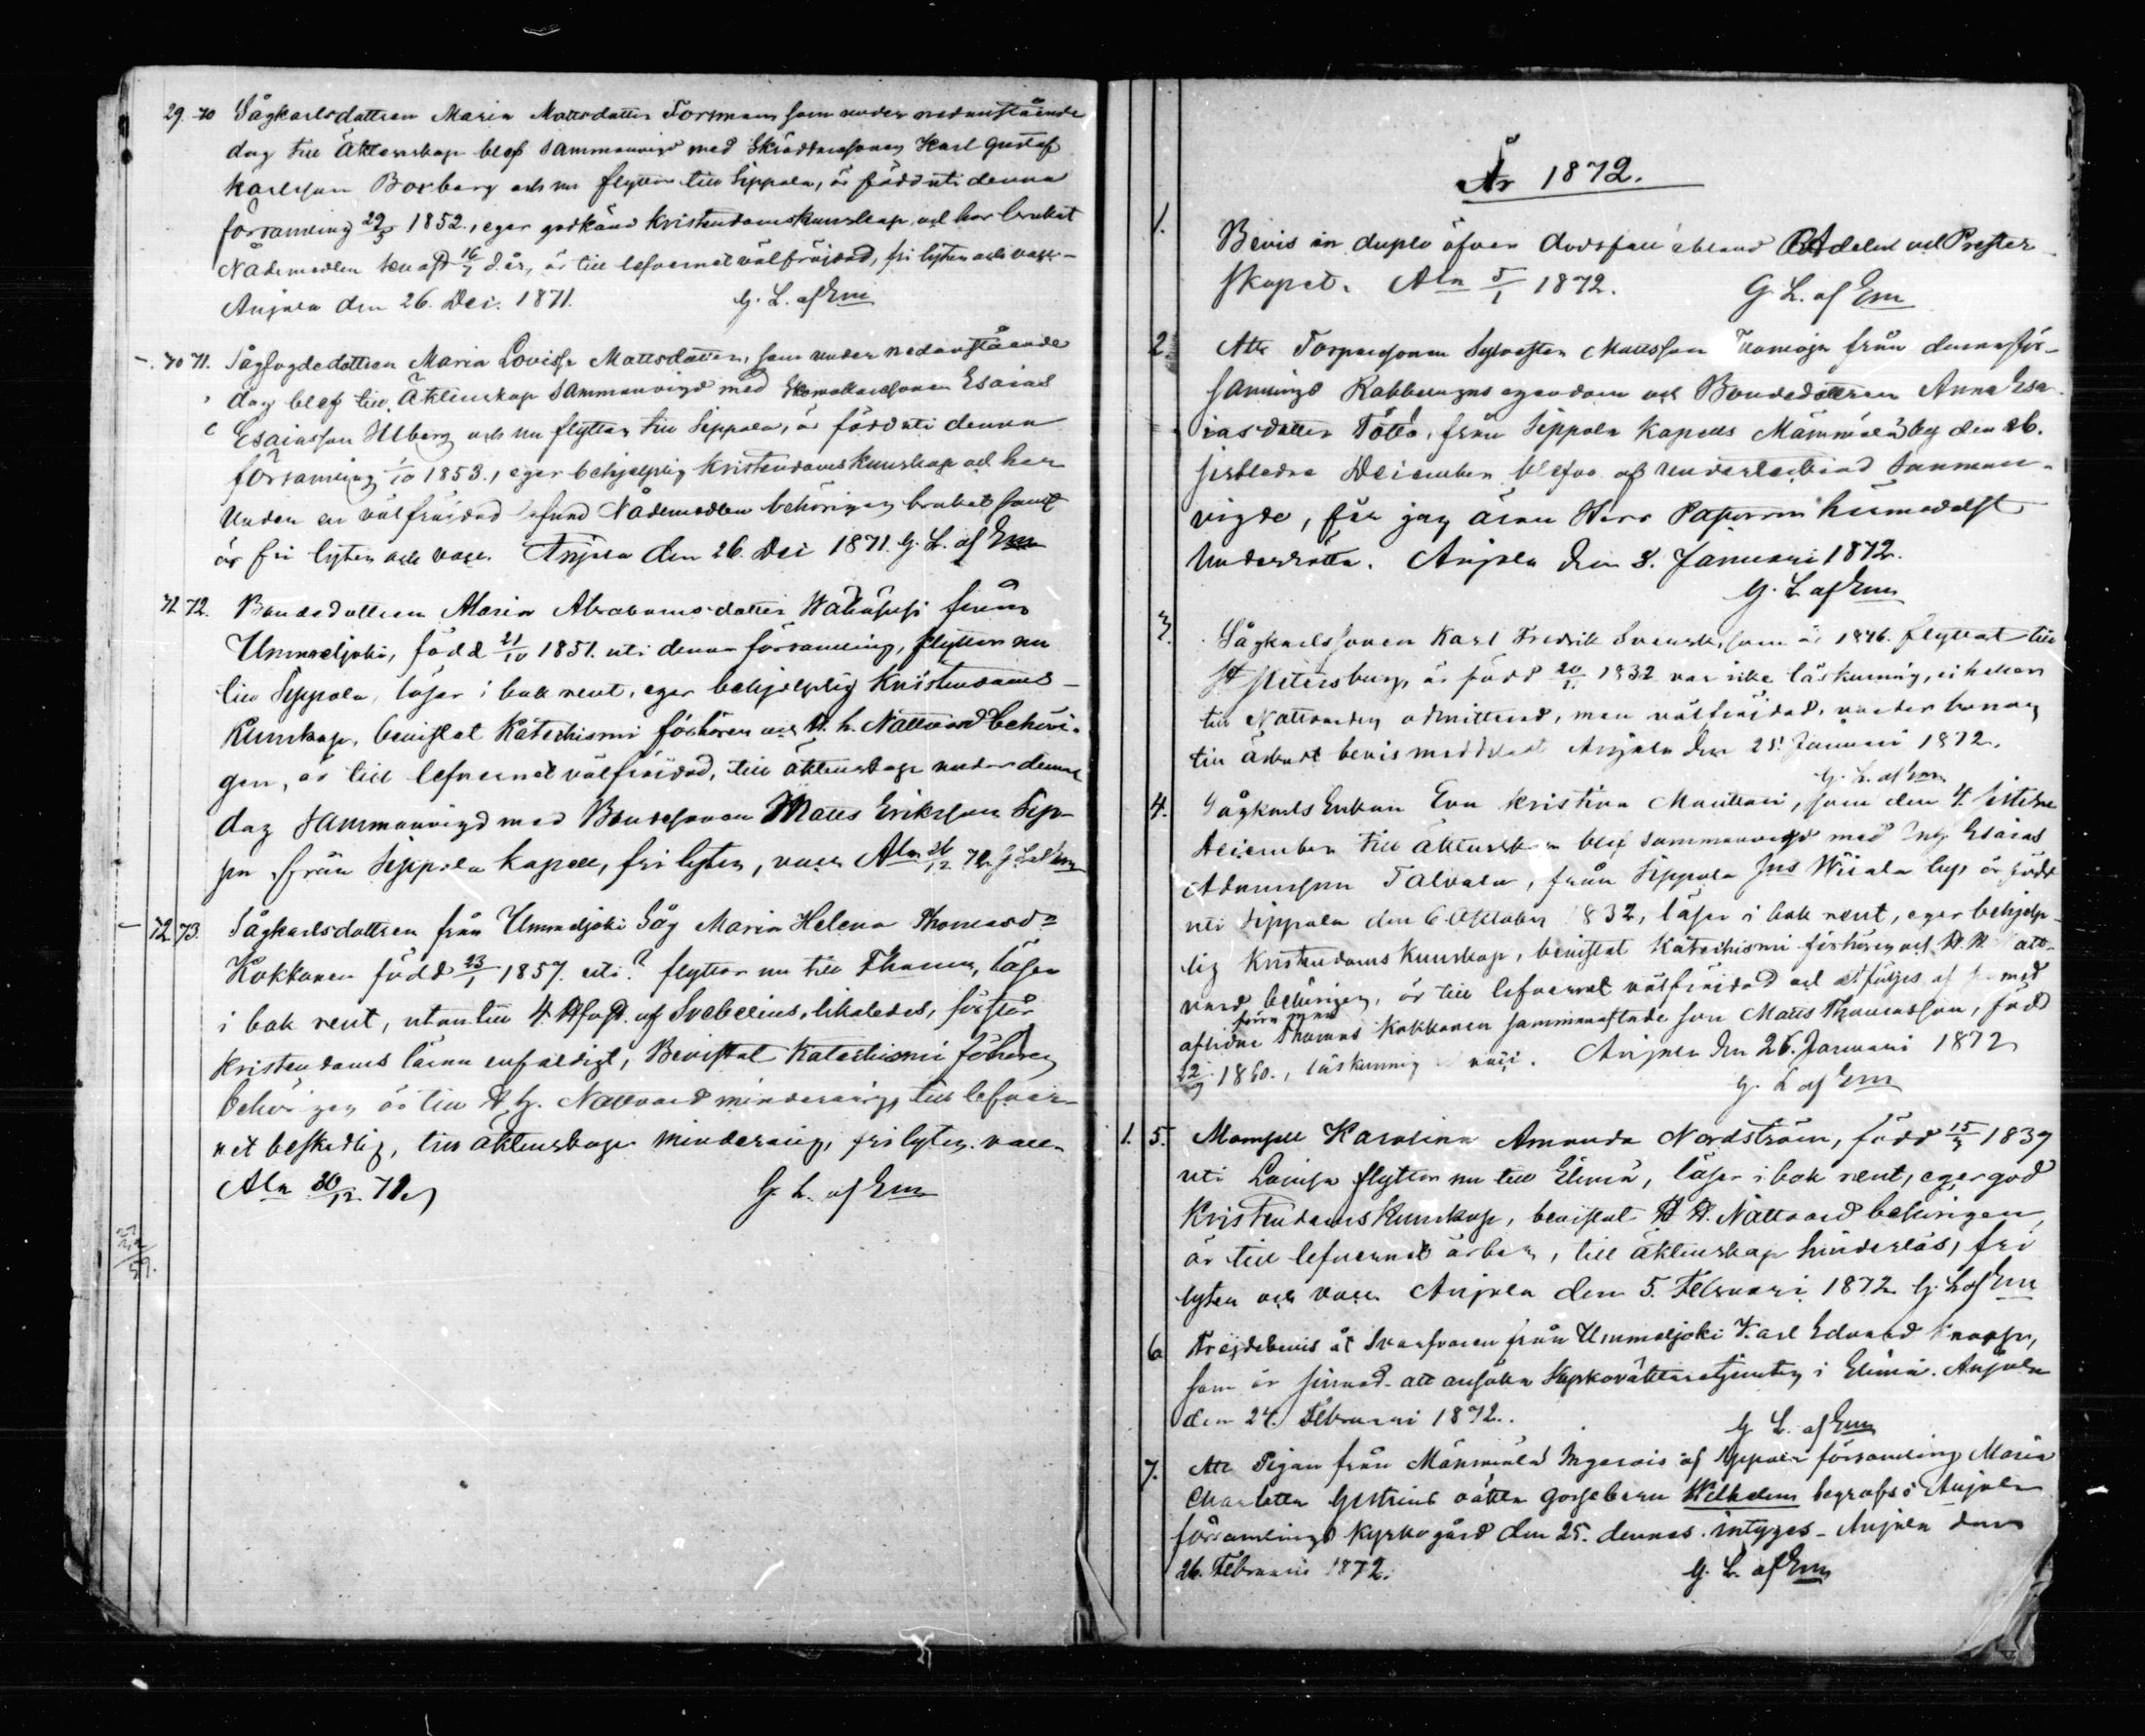 29. 70 Sågkarlsdottren Maria Mattsdotter Forsman som under nedanstående
dag till Äktenskap blef sammanvigd med Skräddaresonen Karl Gustaf
Karlsson Boxberg och nu flyttar till Sippola, är född uti denna
församling 29/5 1852., eger godkänd Kristendomskunskap och har brukat
Nådemedlen 16/7 d. år, är till lefvernet välfräjdad, fri lyten och vacc.
Anjala den 26. Dec. 1871. G. L. af Enn
70 71. Sågfogdedottren Maria Lovisa Mattsdotter, som under nedanstående
dag blef till Äktenskap sammanvigd med Skomakaresonen Esaias
Esaiasson Ulberg och nu flyttar till Sippola, är född uti denna
församling 1/10 1853., eger behjelplig Kristendoms Kunskap och har
under en välfräjdad Nådemedlen behörigen brukat samt
är fri lyten och vacc. Anjala den 26. Dec 1871. G. L. af Enn
71 72. Bondedottren Maria Abrahamsdotter från
Ummeljoki, född 21/10 1851. uti denna församling, flyttar nu
till Sippola, läser i bok rent, eger behjelplig Kristendoms
Kunskap, bevistat Katechismi förhören och H. h. Nattvard behöri-
gen, är till lefvernet välfräjdad, till äktenskap under denna
dag sammanvigd med Bondesonen Matts Eriksson Sip-
pu från Sippola kapell, fri lyten, vacc. Ala 26/12 71. G. L. af Enn
72 73. Sågkarlsdottren från Ummeljoki Såg Maria Helena Thomasdr
Kokkonen född 23/1 1857. uti? flyttar nu till Thomm, läser
i bok rent, utantill 4 Hfst. af Svebelius, likaledes, förstår
Kristendoms läran enfaldigt, Bevistat Katechismi förhören
behörigen är till H. H. Nattvard minderårig, till lefver-
net beskedlig, till äktenskap minderårig, fri lyten. vacc.
Ala 30/12 71. G. L. af Enn
År 1872.
1. Bevis in duplo öfver dödsfall ibland Adeln och Prester
skapet. Ala 5/1 1872. G. L. af Enn
2. Att Torparesonen Sylvester Mattsson från denna för-
samlings Rabbelugns egendom och Bondedottren Anna Esa-
iasdotter Töttö, från Sippola Kapells Mämmälä by den 26.
sistledne December blefvo af undertecknad samman-
vigde, får jag äran Herr Pastorn härmedelst
underrätta. Anjala den 8. Januari 1872.
G. L. af Enn
3. Sågkarlssonen Karl Fredrik Svensk, som år 1846. flyttat till
St Petersburg, är född 20/1 1832 var icke läskunnig, ej heller
till Nattvarden admitterad, men välfräjdad, varder honom
till bevis meddeladt Anjala den 25. Januari 1872.
G. L. af Enn
4. Sågkarls Enkan Eva Kristina Manttari, som den 4. sistledne
December till äktenskap blef sammanvigd med Esaias
Adamsson Talvela, från Sippola Wiiala by, är född
uti Sippola den 6. Oktober 1832, läser i bok rent, eger behjelp
lig Kristendoms Kunskap, bevistat Katechismi förhören och H. H. Natt-
vard behörigen, är till lefvernet välfräjdad och åtföljes af med
förra man
aflidne Thomas Kokkonen sammanaflade son Matts Thomasson, född
22/9 1860., läskunnig vacc. Anjala den 26. Januari 1872
G. L. af Enn
1. 5. Mamsell Karolina Amanda Nordström, född 15/3 1839
uti Lovisa flyttar nu till Elimä, läser i bok rent, eger god
Kristendoms Kunskap, bevistat H. H. Nattvard behörigen,
är till lefvernet ärbar, till äktenskap hinderlös, fri
lyten och vacc. Anjala den 5. Februari 1872 G. L. af Enn
6 Fräjdebevis åt Svarfvaren från Ummeljoki Karl Edvard
som är sinnad att ansöka Kyrkovaktaretjensten i Elimä. Anjala
den 24. Februari 1872.. G. L. af Enn
7. Att Pigan från Mämmälä Ingerois af Sippola församling Maria
Charlotta Gestrins oäkta gossebarn Wilhelm begrafs å Anjala
församlings Kyrkogård den 25. dennes. intygas. Anjala den
26. Februari 1872. G. L. af Enn